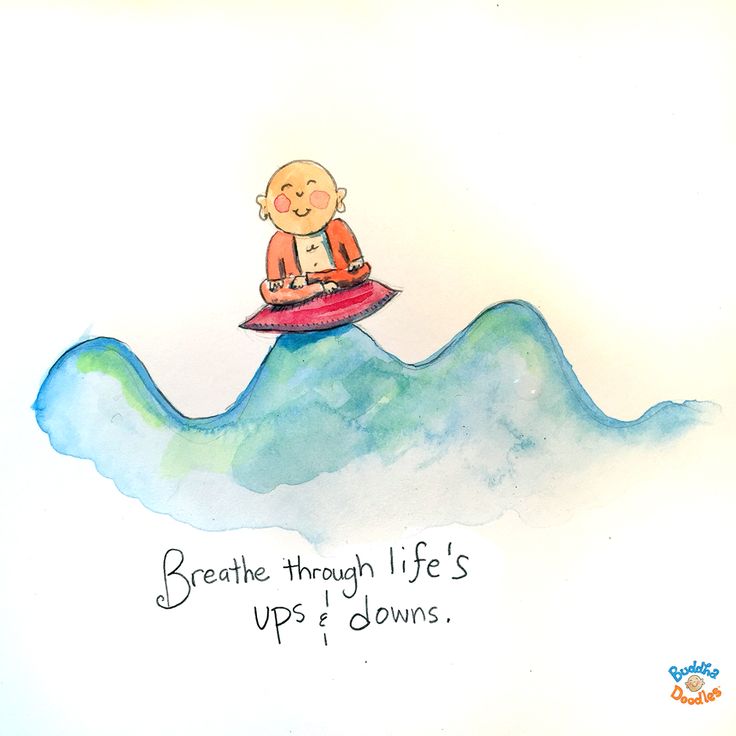 Breathe through life's
ups & downs.
Buddha
Doodles